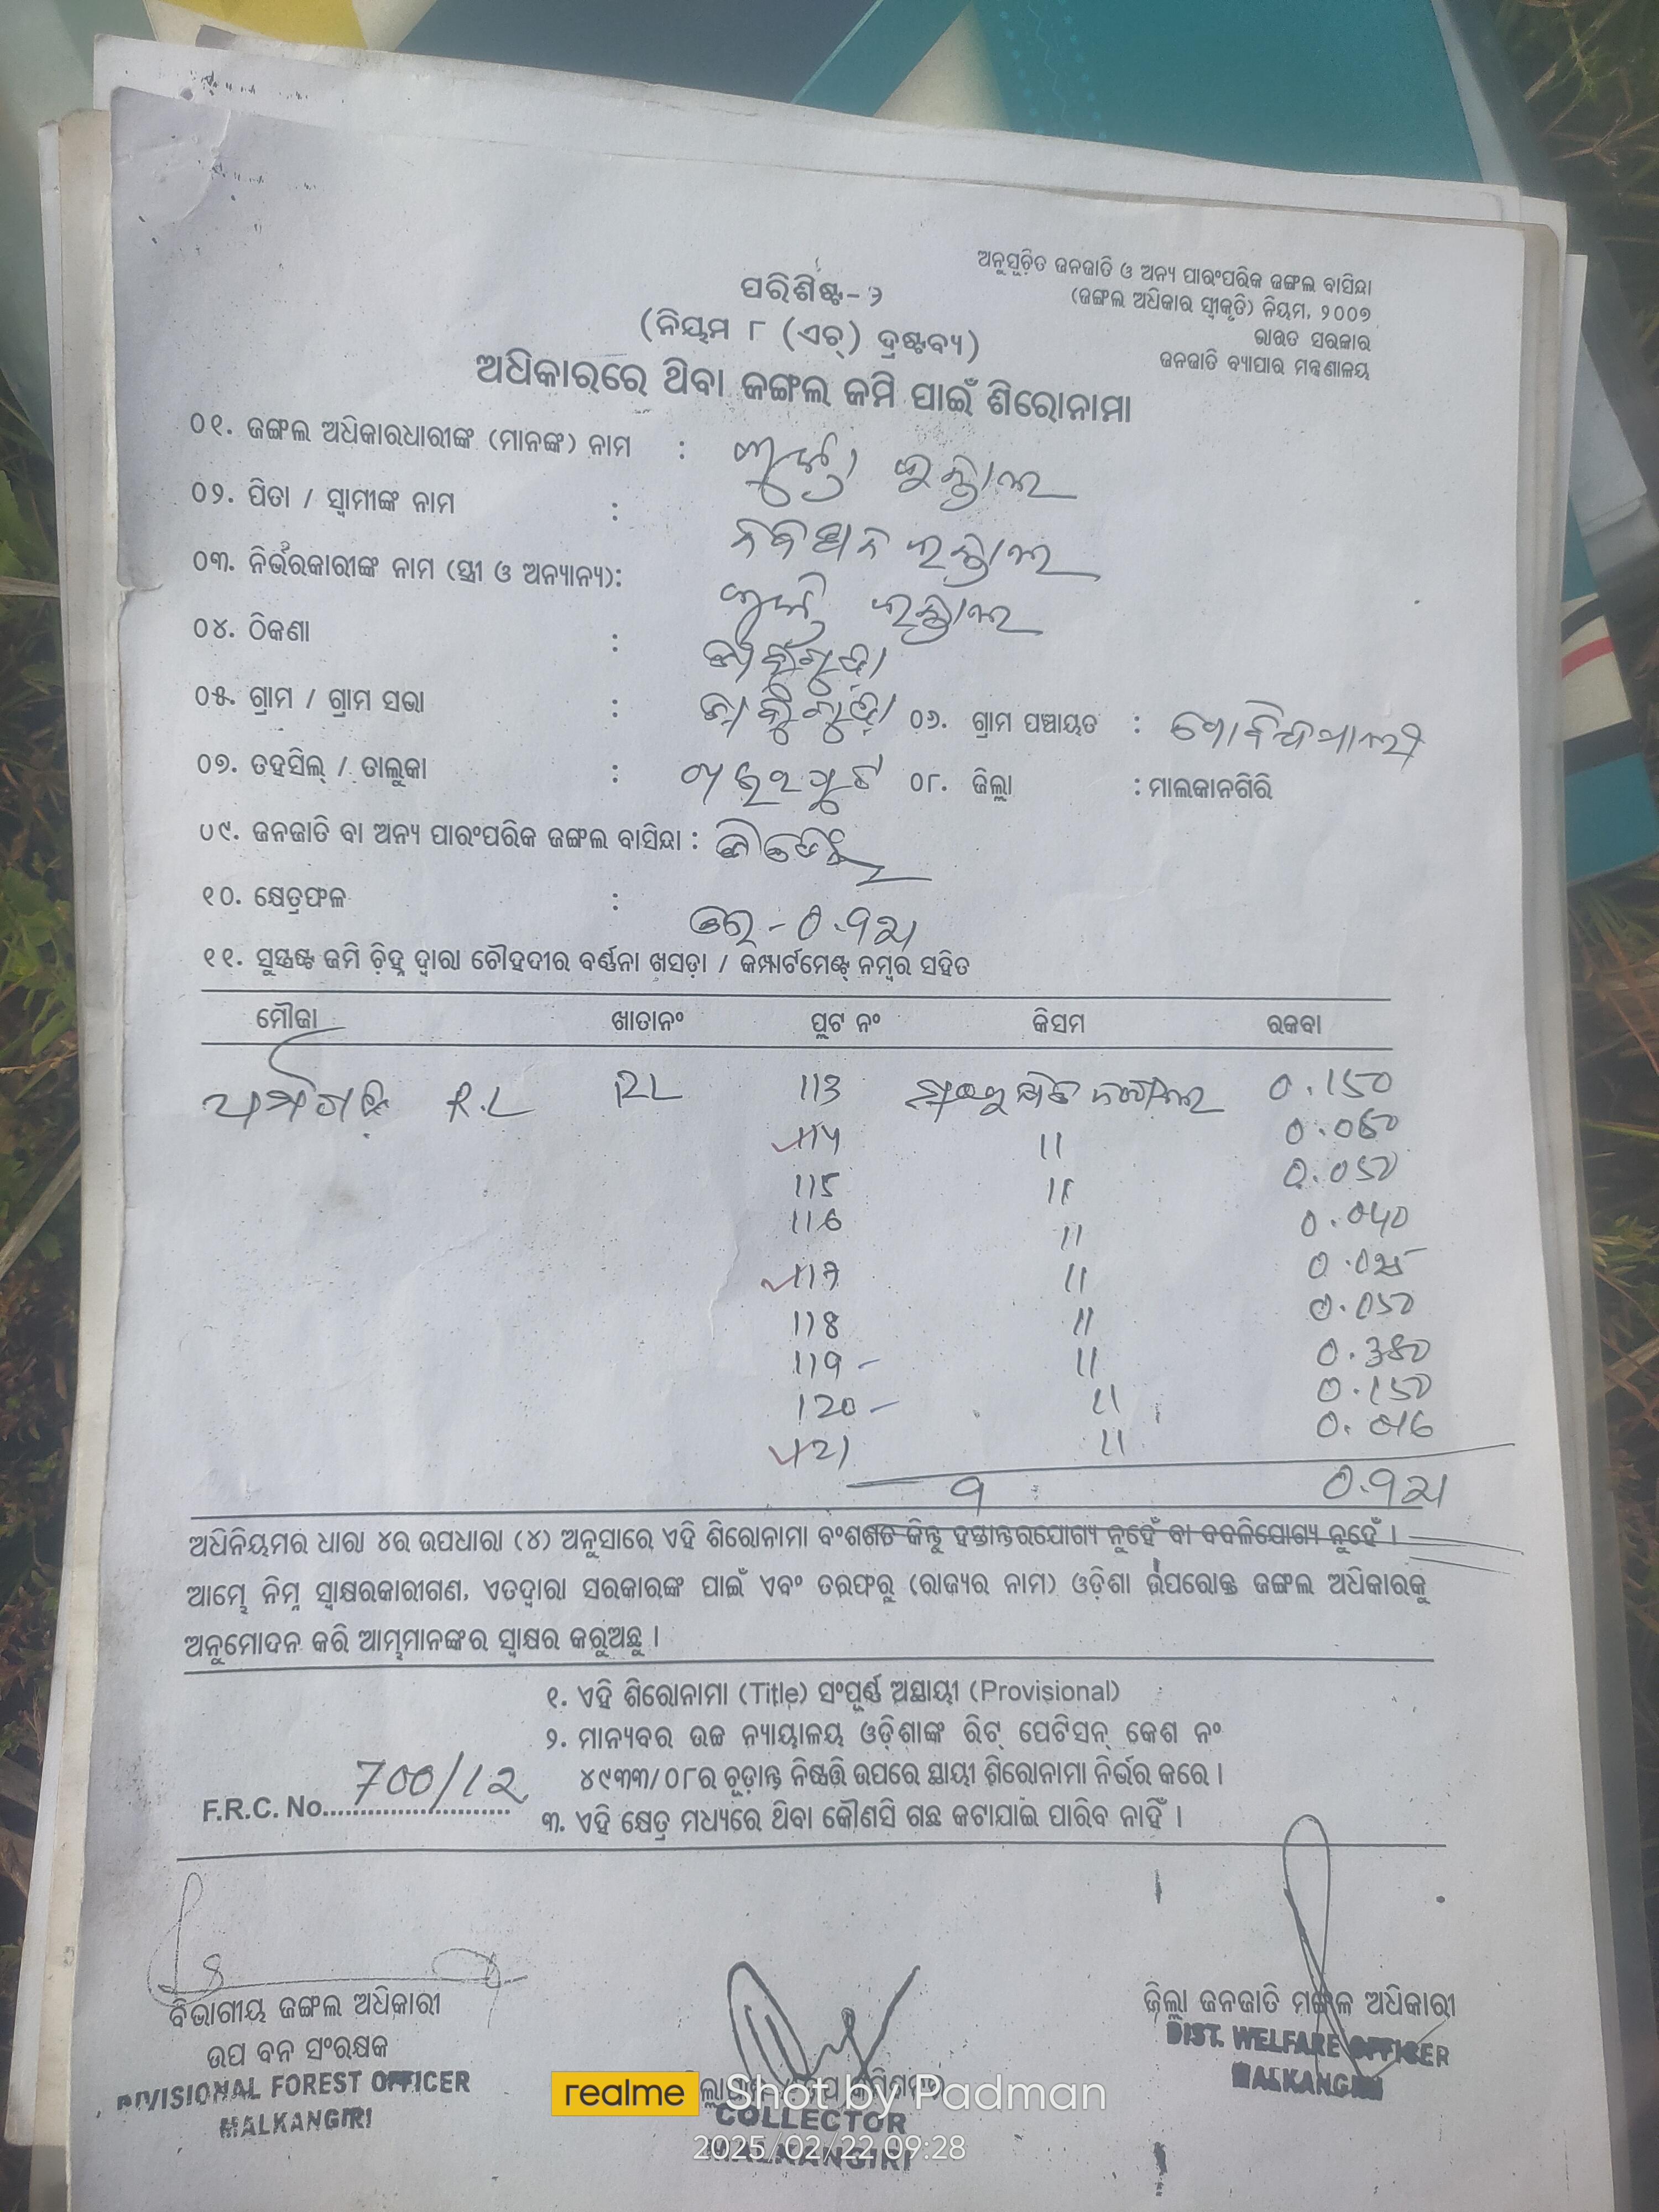 ଅନୁସୂଚିତ ଜନଜାତି ଓ ଅନ୍ୟ ପାରଂପରିକ ଜଙ୍ଗଲ ବାସିନ୍ଦା
(ଜଙ୍ଗଲ ଅଧିକାର ସ୍ୱୀକୃତି) ନିୟମ, ୨୦୦୭
ଭାରତ ସରକାର
ଜନଜାତି ବ୍ୟାପାର ମନ୍ତ୍ରଣାଳୟ
ପରିଶିଷ୍ଟ-୨
(ନିୟମ ୮ (ଏଚ୍) ଦ୍ରଷ୍ଟବ୍ୟ)
ଅଧିକାରରେ ଥିବା ଜଙ୍ଗଲ ଜମି ପାଇଁ ଶିରୋନାମା
୦୧. ଜଙ୍ଗଲ ଅଧିକାରଧାରୀଙ୍କ (ମାନଙ୍କ) ନାମ :
୦୨. ପିତା / ସ୍ୱାମୀଙ୍କ ନାମ :
୦୩. ନିର୍ଭରକାରୀଙ୍କ ନାମ (ସ୍ତ୍ରୀ ଓ ଅନ୍ୟାନ୍ୟ):
୦୪. ଠିକଣା :
୦୫. ଗ୍ରାମ / ଗ୍ରାମ ସଭା : ୦୬. ଗ୍ରାମ ପଞ୍ଚାୟତ : ଗୋବିନ୍ଦପାଲୀ
୦୭. ତହସିଲ୍ / ତାଲୁକା : ଖଇରପୁଟ ୦୮. ଜିଲ୍ଲା : ମାଲକାନଗିରି
୦୯. ଜନଜାତି ବା ଅନ୍ୟ ପାରଂପରିକ ଜଙ୍ଗଲ ବାସିନ୍ଦା :
୧୦. କ୍ଷେତ୍ରଫଳ : ହେ - 0.୨21
୧୧. ସୁସ୍ପଷ୍ଟ ଜମି ଚିହ୍ନ ଦ୍ୱାରା ଚୌହଦୀର ବର୍ଣ୍ଣନା ଖସଡ଼ା / କମ୍ପାର୍ଟମେଣ୍ଟ୍ ନମ୍ବର ସହିତ
ମୌଜା ଖାତାନଂ ପ୍ଲଟ ନଂ କିସମ ରକବା
R.L RL 113 0.150
114 11 0.060
115 11 0.050
116 11 0.040
117 11 0.025
118 11 0.050
119 - 11 0.380
120 - 11 0.150
121 11 0.016
9 0.921
ଅଧିନିୟମର ଧାରା ୪ର ଉପଧାରା (୪) ଅନୁସାରେ ଏହି ଶିରୋନାମା ବଂଶଗତ କିନ୍ତୁ ହସ୍ତାନ୍ତରଯୋଗ୍ୟ ନୁହେଁ ବା ବଦଳିଯୋଗ୍ୟ ନୁହେଁ ।
ଆମ୍ଭେ ନିମ୍ନ ସ୍ୱାକ୍ଷରକାରୀଗଣ, ଏତଦ୍ୱାରା ସରକାରଙ୍କ ପାଇଁ ଏବଂ ତରଫରୁ (ରାଜ୍ୟର ନାମ) ଓଡ଼ିଶା ଉପରୋକ୍ତ ଜଙ୍ଗଲ ଅଧିକାରକୁ
ଅନୁମୋଦନ କରି ଆମ୍ଭମାନଙ୍କର ସ୍ୱାକ୍ଷର କରୁଅଛୁ ।
୧. ଏହି ଶିରୋନାମା (Title) ସଂପୂର୍ଣ୍ଣ ଅସ୍ଥାୟୀ (Provisional)
୨. ମାନ୍ୟବର ଉଚ୍ଚ ନ୍ୟାୟାଳୟ ଓଡ଼ିଶାଙ୍କ ରିଟ୍ ପେଟିସନ୍ କେଶ ନଂ
୪୯୩୩/୦୮ର ଚୂଡ଼ାନ୍ତ ନିଷ୍ପତ୍ତି ଉପରେ ସ୍ଥାୟୀ ଶିରୋନାମା ନିର୍ଭର କରେ ।
F.R.C. No. 700/12
୩. ଏହି କ୍ଷେତ୍ର ମଧ୍ୟରେ ଥିବା କୌଣସି ଗଛ କଟାଯାଇ ପାରିବ ନାହିଁ ।
ବିଭାଗୀୟ ଜଙ୍ଗଲ ଅଧିକାରୀ
ଉପ ବନ ସଂରକ୍ଷକ
DIVISIONAL FOREST OFFICER
MALKANGIRI
ଜିଲ୍ଲା ଜନଜାତି ମଙ୍ଗଳ ଅଧିକାରୀ
DIST. WELFARE OFFICER
MALKANGIRI
COLLECTOR
MALKANGIRI
realme Shot by Padman
2025/02/22 09:28